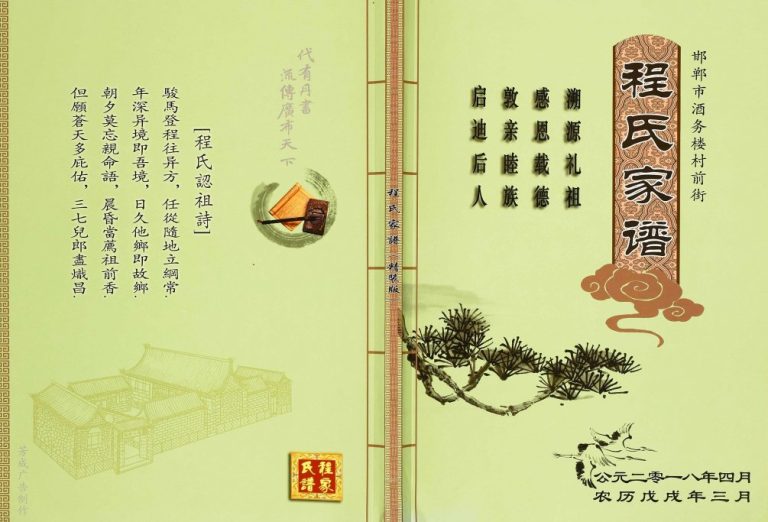 邯郸市酒务楼村前街
程氏家谱
溯源礼祖
感恩载德
敦亲睦族
启迪后人
公元二零一八年四月
农历戊戌年三月
程氏家譜 精裝版
代有丹書
流傳廣布天下
[程氏認祖詩]
駿馬登程往异方，任從隨地立綱常.
年深异境即吾境，日久他鄉即故鄉.
朝夕莫忘親命語，晨昏當薦祖前香.
但願蒼天多庇佑，三七兒郎盡熾昌.
程氏
家譜
芳成广告制作